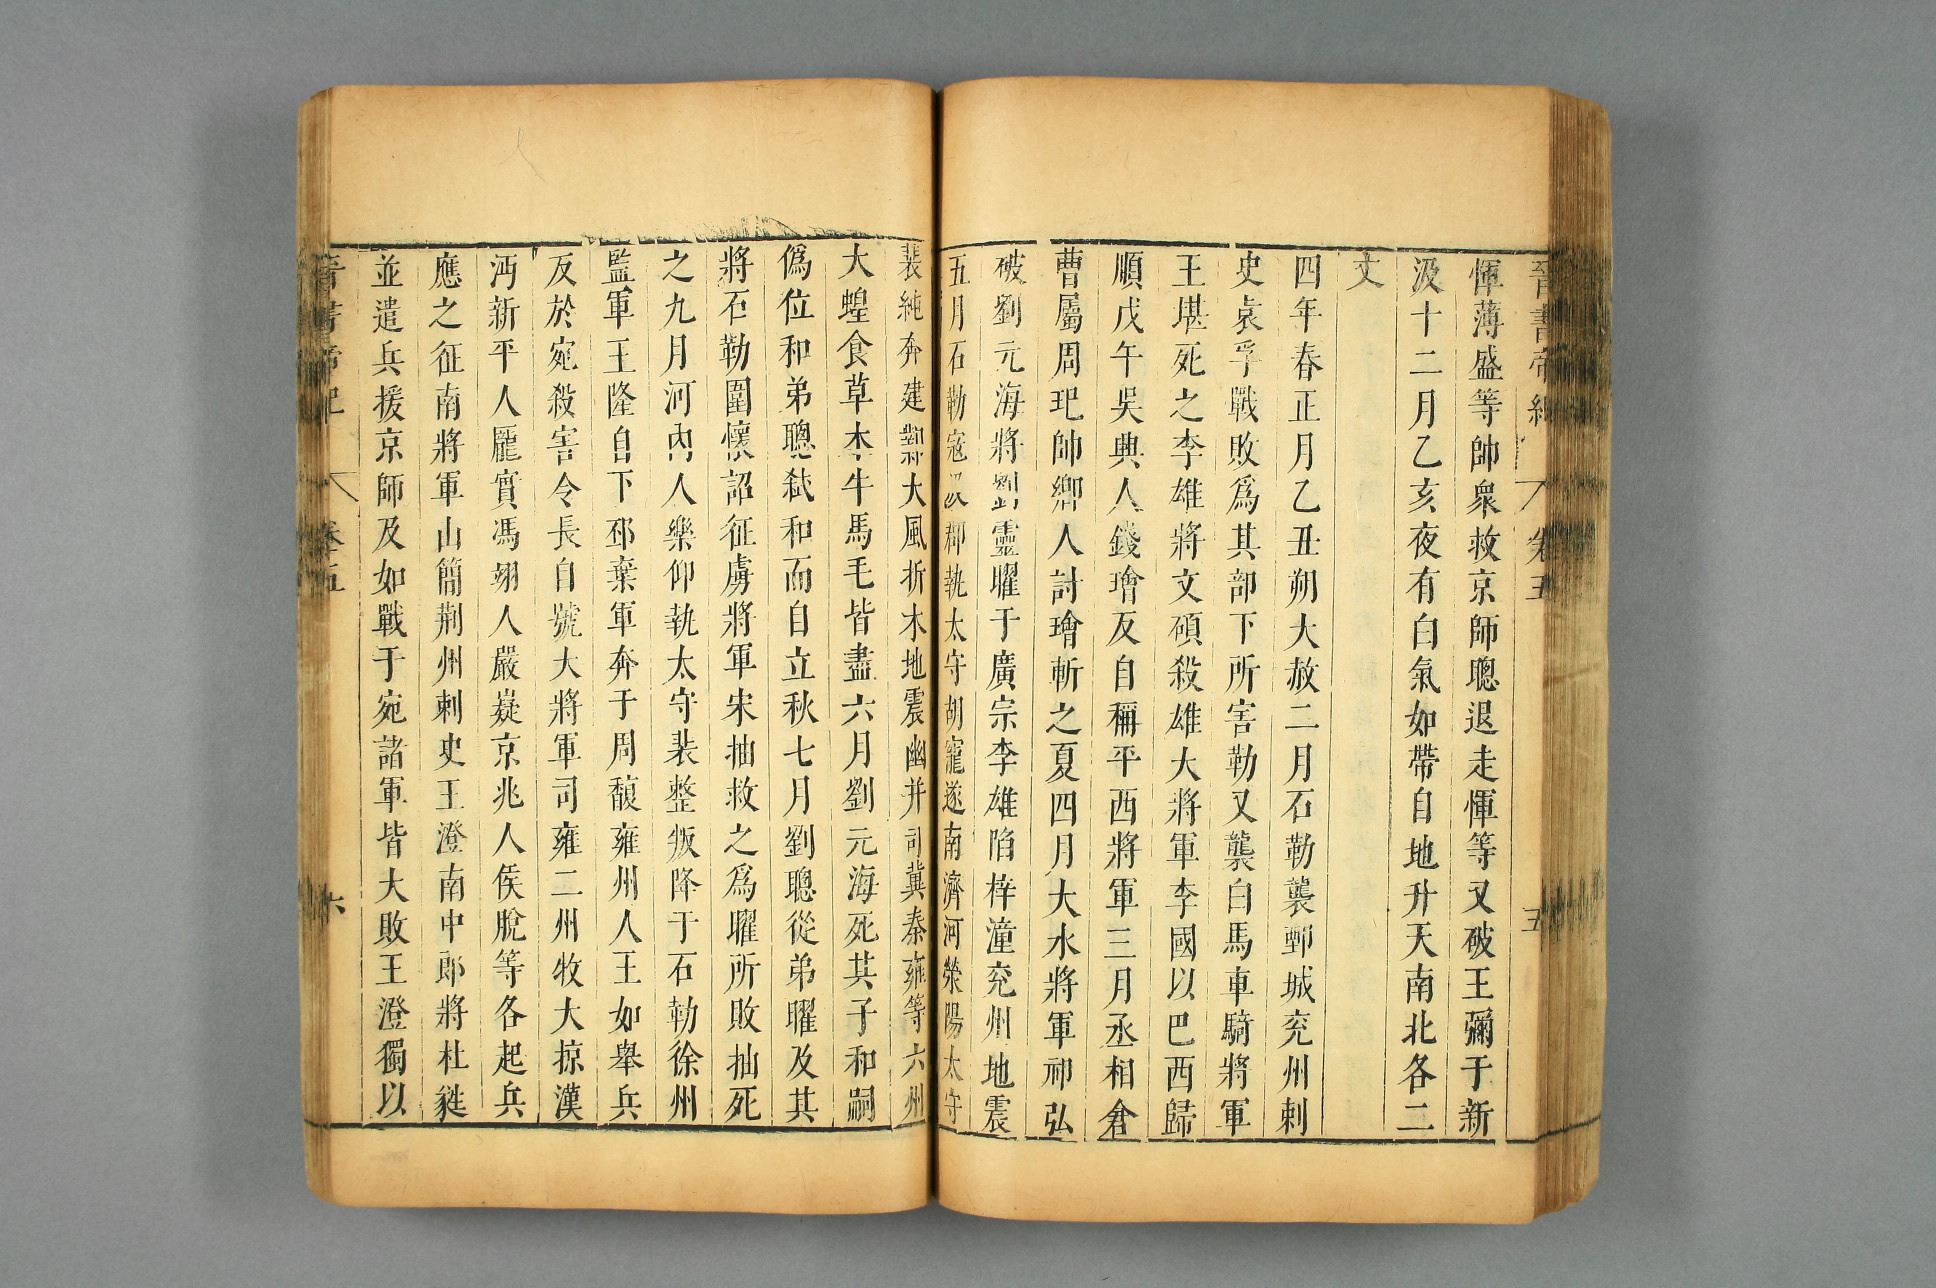 晉書帝紀 卷五 五
惲薄盛等帥衆救京師聰退走惲等又破王彌于新
汲十二月乙亥夜有白氣如帶自地升天南北各二
丈
四年春正月乙丑朔大赦二月石勒襲鄄城兖州刺
史袁孚戰敗爲其部下所害勒又襲白馬車騎將軍
王堪死之李雄將文碩殺雄大將軍李國以巴西歸
順戊午吳興人錢璯反自稱平西將軍三月丞相倉
曹屬周玘帥鄉人討璯斬之夏四月大水將軍祁弘
破劉元海將劉靈曜于廣宗李雄陷梓潼兖州地震
五月石勒寇汲郡執太守胡寵遂南濟河滎陽太守
裴純奔建鄴大風折木地震幽并司冀秦雍等六州
大蝗食草木牛馬毛皆盡六月劉元海死其子和嗣
僞位和弟聰弑和而自立秋七月劉聰從弟曜及其
將石勒圍懷詔征虜將軍宋抽救之爲曜所敗抽死
之九月河內人樂仰執太守裴整叛降于石勒徐州
監軍王隆自下邳棄軍奔于周馥雍州人王如舉兵
反於宛殺害令長自號大將軍司雍二州牧大掠漢
沔新平人龐實馮翊人嚴嶷京兆人侯脫等各起兵
應之征南將軍山簡荆州刺史王澄南中郎將杜蕤
並遣兵援京師及如戰于宛諸軍皆大敗王澄獨以
晉書帝紀 卷五 六